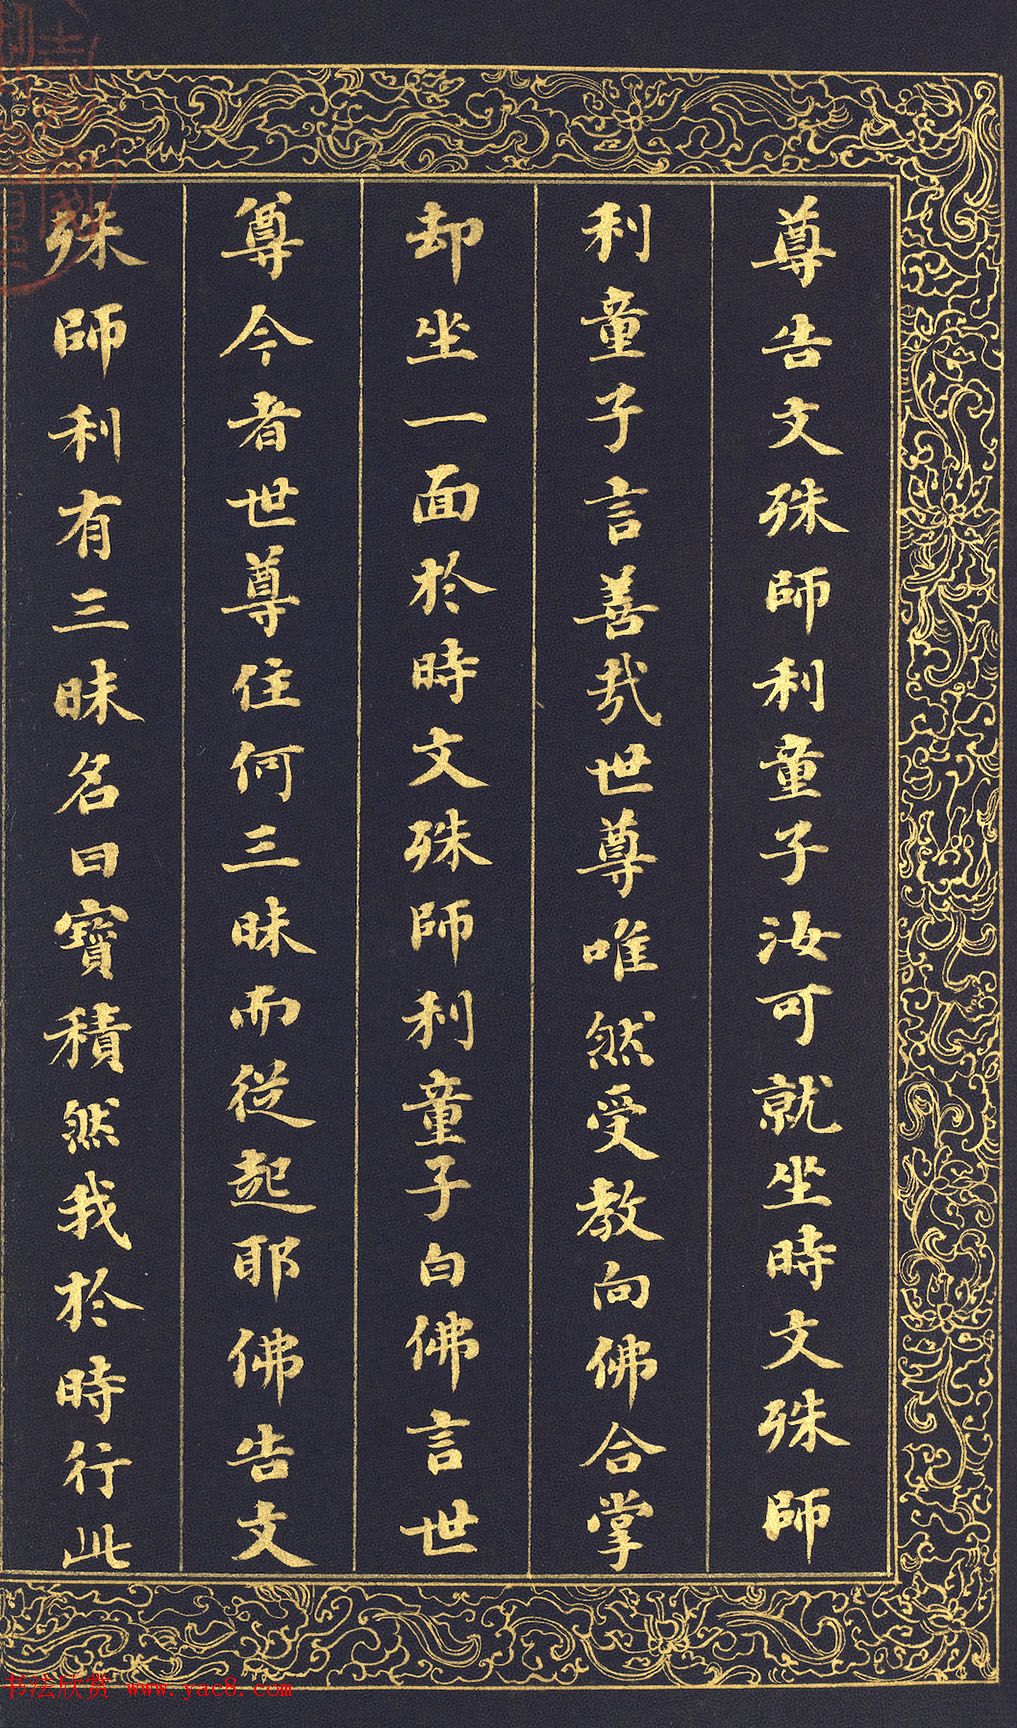 尊告文殊師利童子汝可就坐時文殊師
利童子言善哉世尊唯然受教向佛合掌
却坐一面於時文殊師利童子白佛言世
尊今者世尊住何三昧而從起耶佛告文
殊師利有三昧名曰寶積然我於時行此
书法欣赏 www.yac8.com